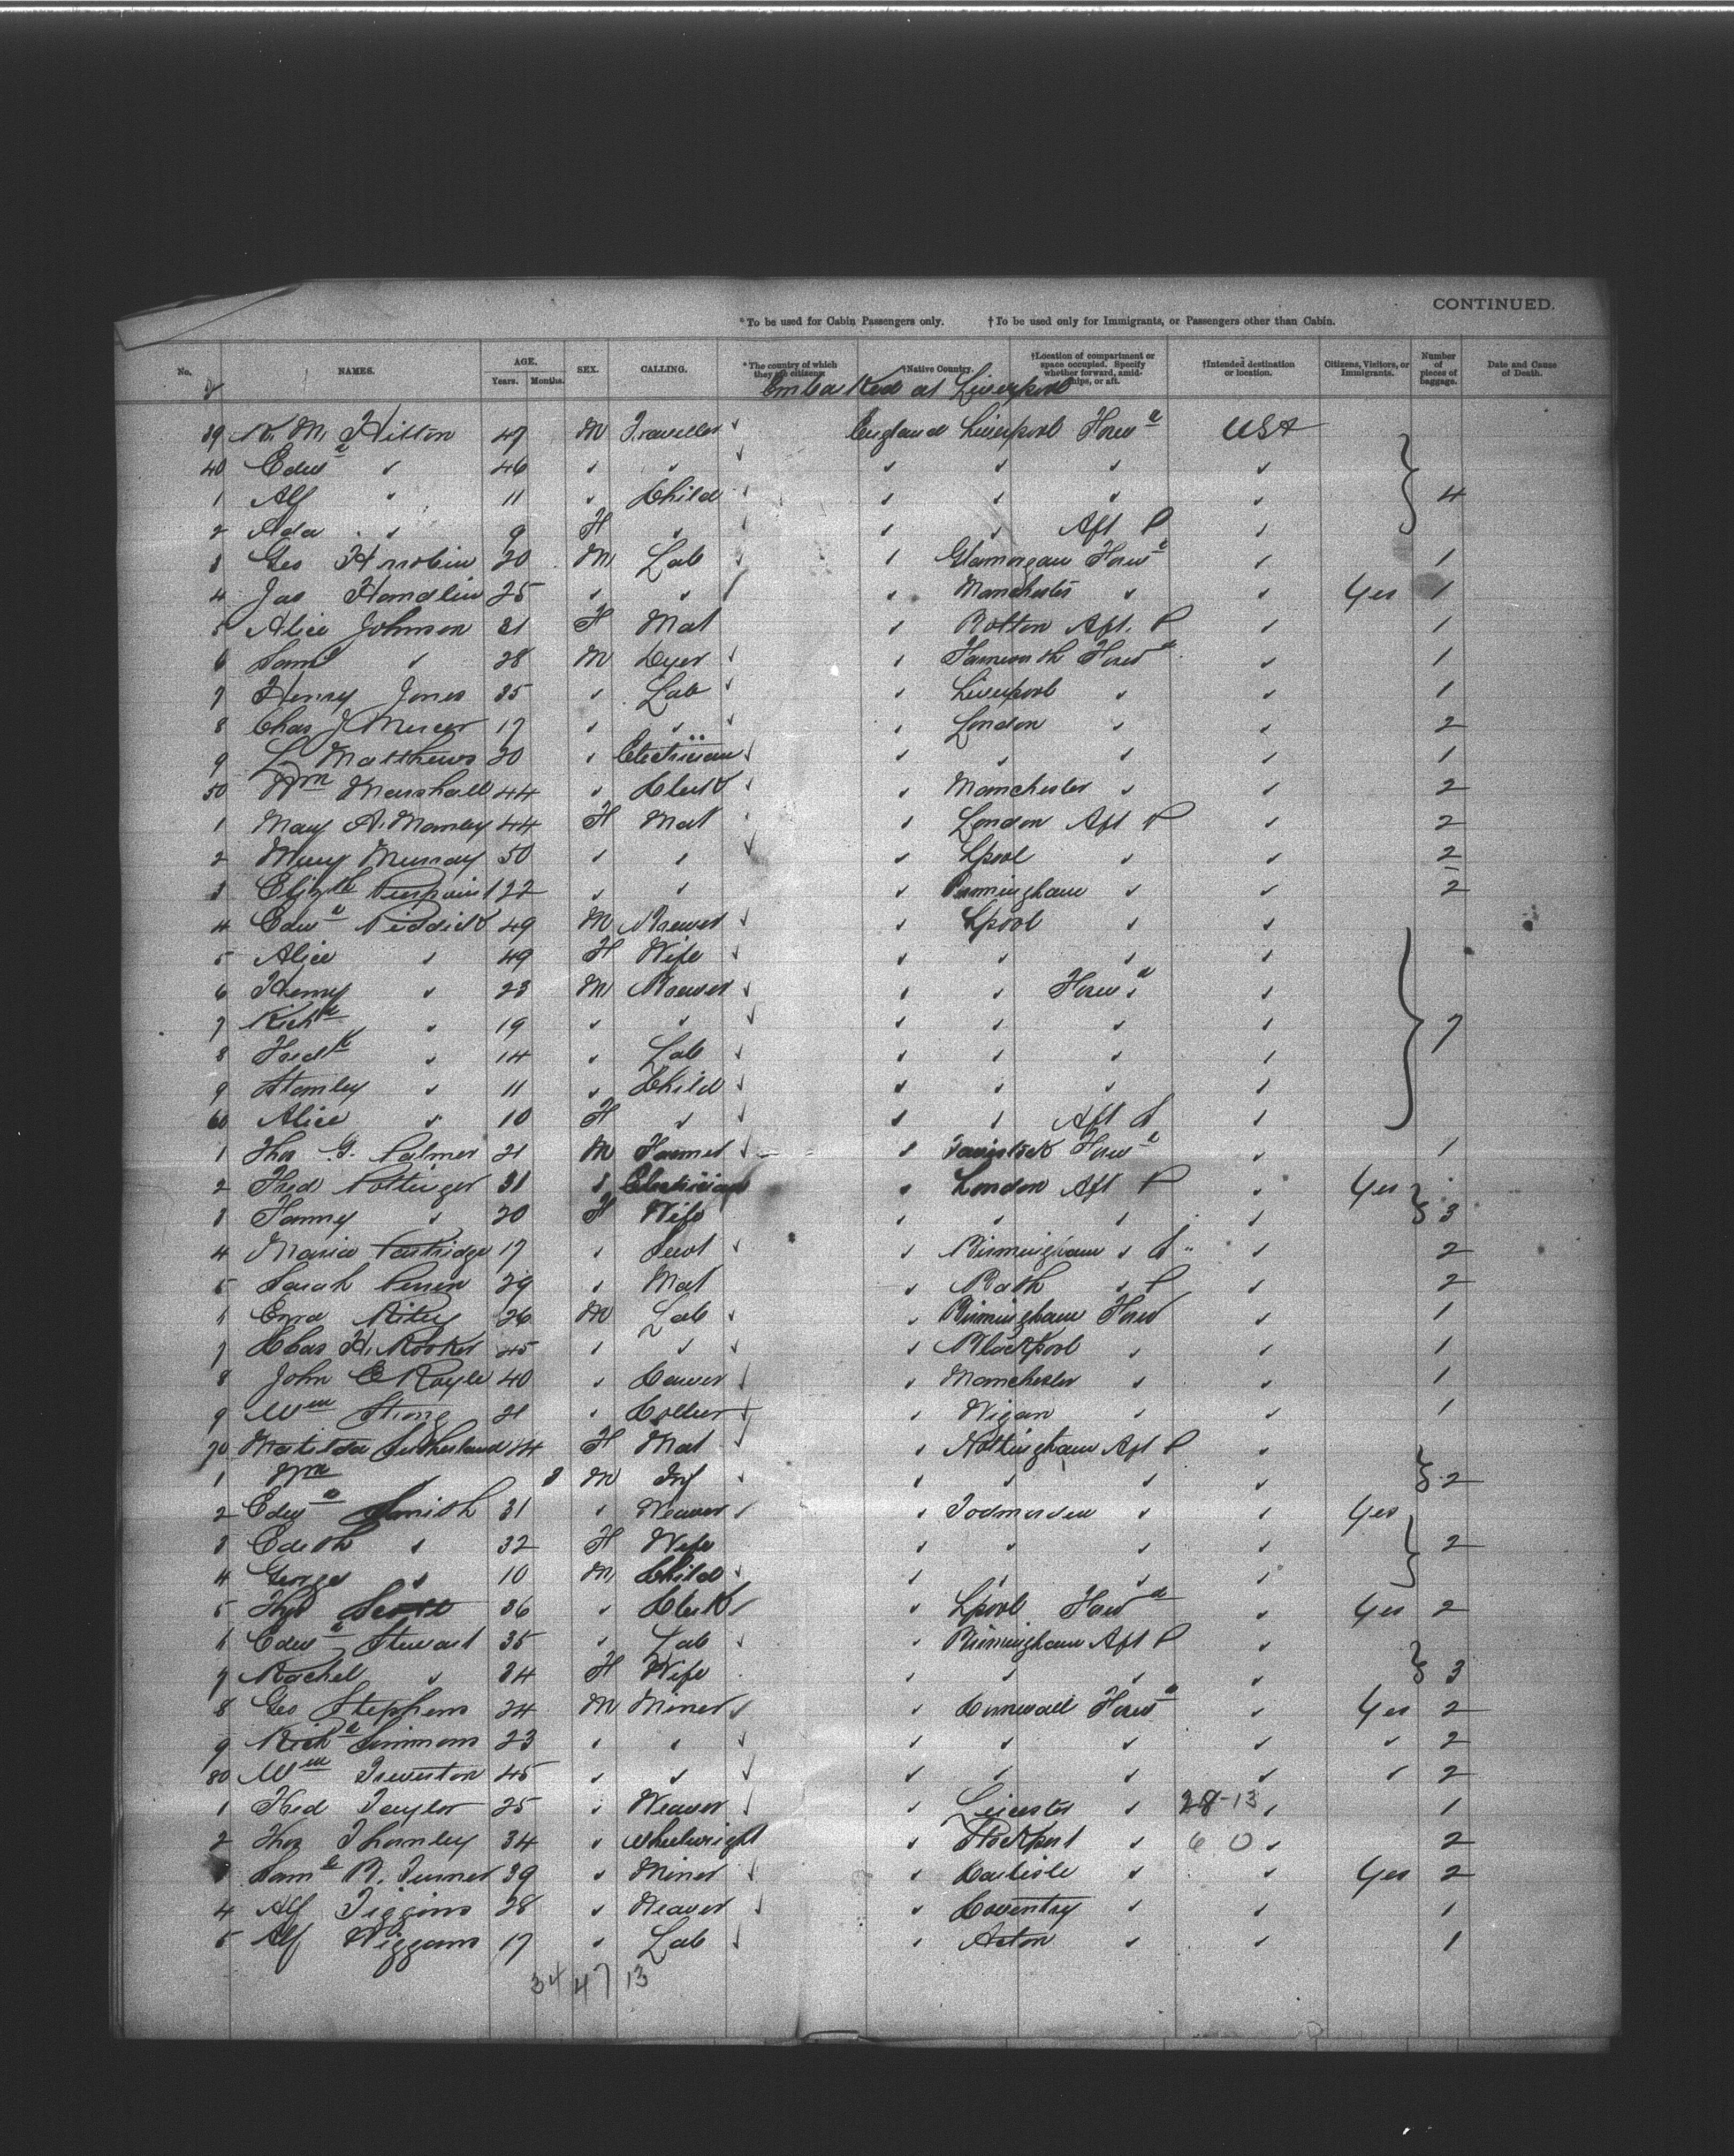 CONTINUED.
*To be used for Cabin Passengers only. †To be used only for Immigrants, or Passengers other than Cabin.
No. NAMES. AGE. Years. Months. SEX. CALLING. *The country of which they are citizens. †Native Country. †Location of compartment or space occupied. Specify whether forward, amidships, or aft. †Intended destination or location. Citizens, Visitors, or Immigrants. Number of pieces of baggage. Date and Cause of Death.
Embarked at Liverpool
39 M. Hilton 47 M Traveller England Liverpool Forwd USA
40 Edwd " 46 " " " " " "
1 Alf " 11 " Child " " " " 4
2 Ada " 9 F " " " Aft P "
3 Geo 30 M Lab " Glamorgan Forwd " 1
4 Jas Handlin 25 " " " Manchester " " Yes 1
5 Alice Johnson 31 F Mat " Bolton Aft P " 1
6 Saml " 28 M Dyer " Farnworth Forwd " 1
7 Henry Jones 35 " Lab " Liverpool " " 1
8 Chas J Mercer 17 " " " London " " 2
9 L Matthews 30 " Electrician " " " " 1
50 Wm Marshall 44 " Clerk " Manchester " " 2
1 Mary A. Manley 44 F Mat " London Aft P " 2
2 Mary Murray 50 " " " Lpool " " 2
3 Elizth 22 " " " Birmingham " " 2
4 Edwd Piddick 49 M Brewer " Lpool " "
5 Alice " 49 F Wife " " " "
6 Henry " 23 M Brewer " " Forwd "
7 Richd " 19 " " " " " " 7
8 Fredk " 14 " Lab " " " "
9 Stanley " 11 " Child " " " "
60 Alice " 10 F " " " Aft S "
1 Thos G. Palmer 21 M Farmer " Tavistock Forwd " 1
2 Fred Pottinger 31 " Electrician " London Aft P " Yes
3 Fanny " 30 F Wife " " " " 3
4 Maria Partridge 17 " Servt " Birmingham " S " 2
5 Sarah 29 " Mat " Bath " P " 2
6 Ezra Riley 26 M Lab " Birmingham Forwd " 1
7 Chas H. Rooker 45 " " " Blackpool " " 1
8 John E Royle 40 " Carver " Manchester " " 1
9 Wm Strong 21 " Collier " Wigan " " 1
70 Matilda Sutherland 44 F Mat " Nottingham Aft P "
1 Wm " M Inf " " " " 2
2 Edwd Smith 31 " Weaver " Todmorden " " Yes
3 Edith " 32 F Wife " " " " 2
4 George " 10 M Child " " " "
5 Scott 36 " Clerk " Lpool Forwd " Yes 2
6 Edwd Stewart 35 " Lab " Birmingham Aft P "
7 Rachel " 34 F Wife " " " " 3
8 Geo Stephens 24 M Miner " Cornwall Forwd " Yes 2
9 Richd Simmons 23 " " " " " " " 2
80 Wm Treverton 45 " " " " " " " 2
1 Fred Taylor 25 " Weaver " Leicester " 28-13 " 1
2 Thos Thornley 34 " Wheelwright " Stockport " 6 0 " 2
Saml R. Turner 39 " Miner " Carlisle " " Yes 2
4 Alf Tiggins 28 " Weaver " Coventry " " 1
5 Alf Wiggans 17 " Lab " Acton " " 1
34 47 13